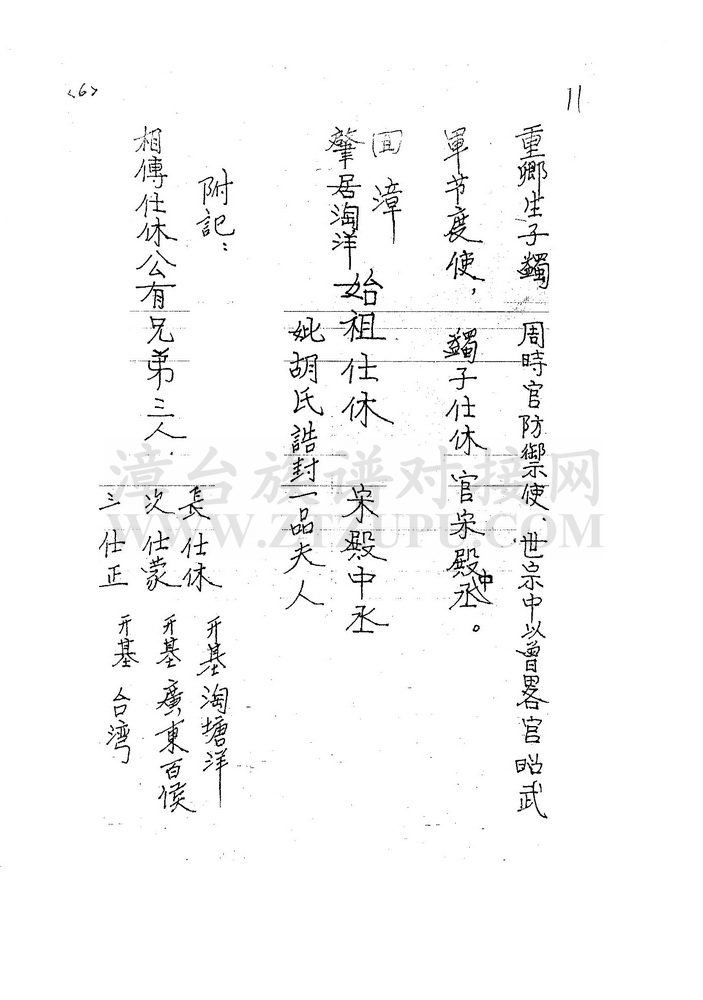 <6>
11
重鄉生子蠲 周時官防禦使、世宗中以曾畧官昭武
軍节度使， 蠲子仕休 官宋殿中丞。
回漳
肇居淘洋 始祖仕休 宋殿中丞
妣胡氏誥封一品夫人
附記：
相傳仕休公有兄弟三人．
長 仕休 开基淘塘洋
次 仕蒙 开基廣東百侯
三 仕正 开基台湾
漳台族谱对接网
WWW.ZTZUPU.COM